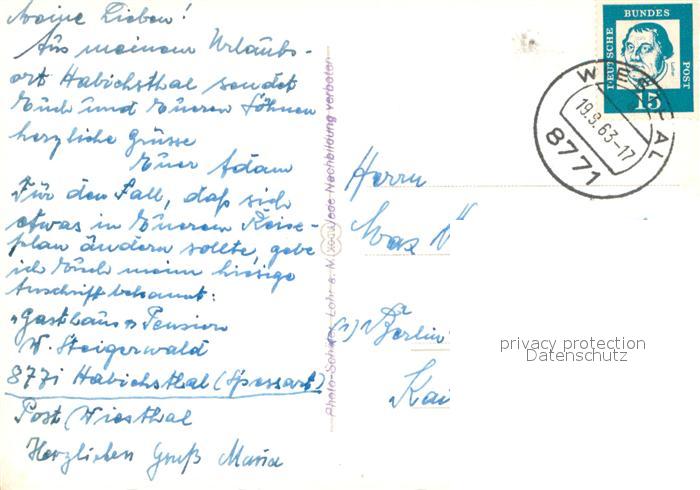 Meine Lieben!
Aus meinem Urlaubs-
ort Habichsthal sendet
Euch und Eueren Söhnen
herzliche Grüsse
Euer Adam
Für den Fall, daß sich
etwas in Euerem Reise-
plan ändern sollte, gebe
ich Euch meine hiesige
Anschrift bekannt:
"Gasthaus" Pension
W. Steigerwald
8771 Habichsthal (Spessart)
Post Wiesthal
Herzlichen Gruß Maria
Photo-Schäfer, Lohr a. M. Jede Nachbildung verboten
DEUTSCHE
BUNDES
POST
Luther
15
19.9.63-17
8771
Herrn
Max
(1) Berlin
Kai
privacy protection
Datenschutz